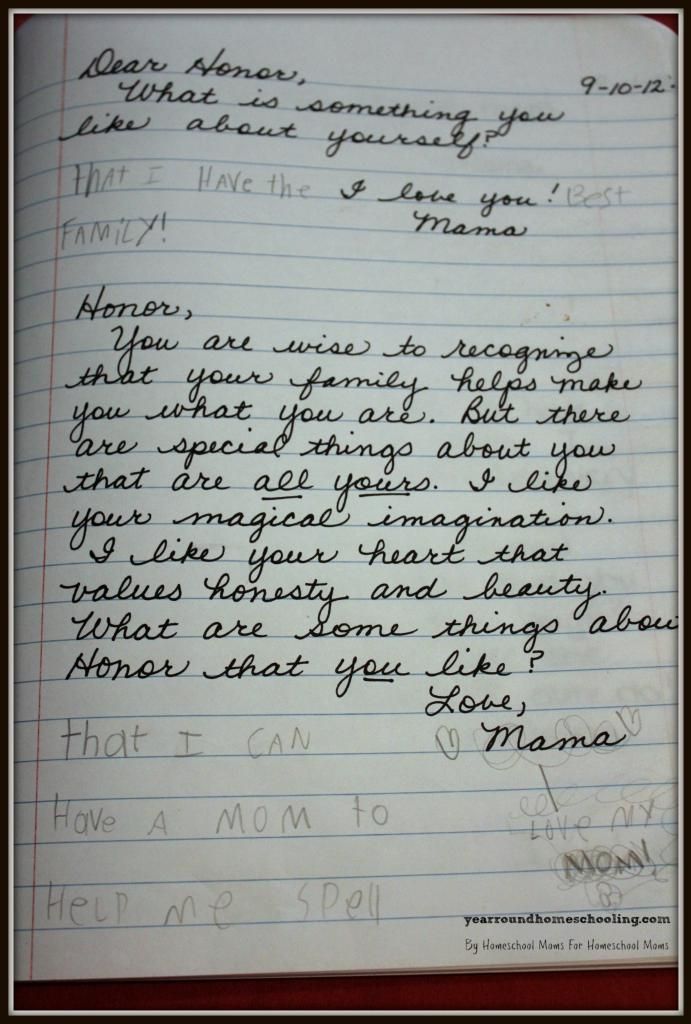 Dear Honor,
9-10-12
What is something you
like about yourself?
THAT I HAVE the I love you! BesT
FAMILY! Mama
Honor,
You are wise to recognize
that your family helps make
you what you are. But there
are special things about you
that are all yours. I like
your magical imagination.
I like your heart that
values honesty and beauty.
What are some things abou
Honor that you like?
Love,
Mama
that I CAN
Have A MOM to
HeLP Me SPell
I
LOVE MY
MOM!
yearroundhomeschooling.com
By Homeschool Moms For Homeschool Moms